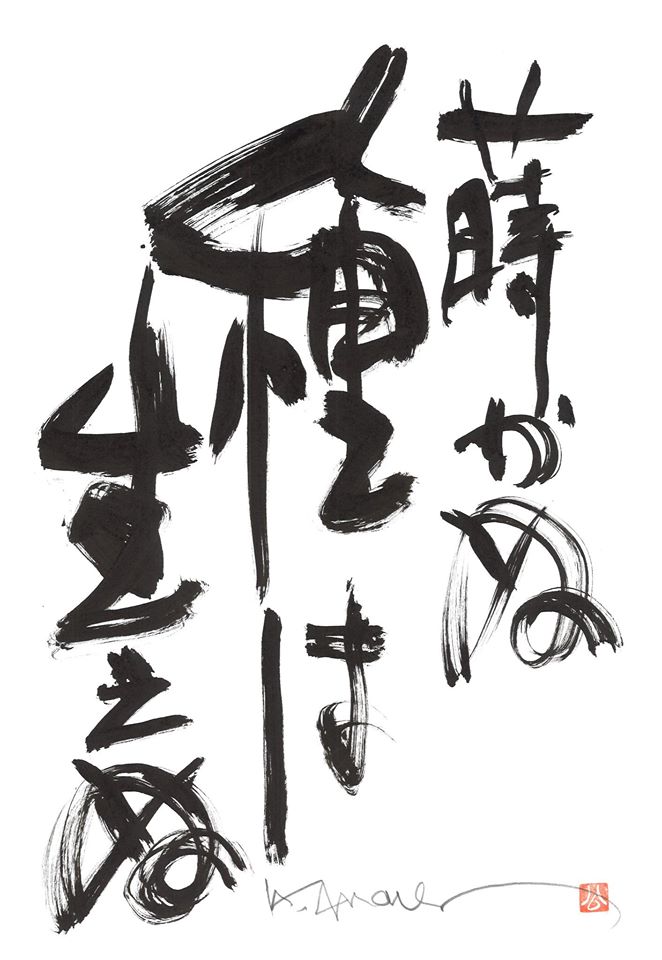 蒔かぬ
種は
生えぬ